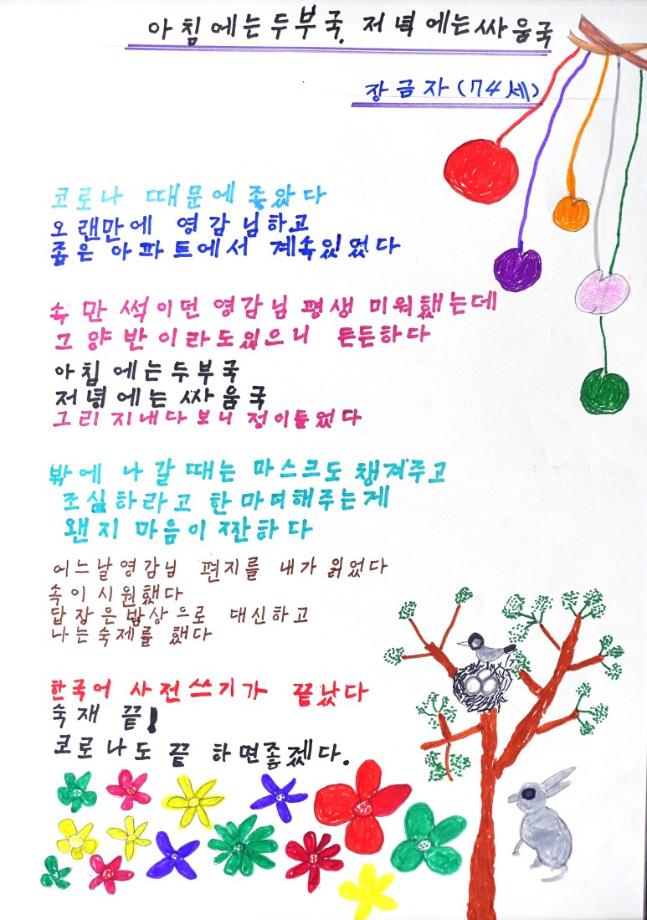 아침에는두부국, 저녁에는싸움국
장금자(74세)
코로나 때문에좋았다
오랜만에 영감님하고
좁은 아파트에서 계속있었다
속만썩이던영감님평생 미워했는데
그양반이라도있으니 든든하다
아침에는두부국
저녁에는싸움국
그리지내다보니정이들었다
밖에 나갈때는 마스크도챙겨주고
조심하라고 한마디해주는게
왠지마음이짠하다
어느날영감님 편지를 내가 읽었다
속이시원했다
답장은밥상으로 대신하고
나는숙제를 했다
한국어 사전쓰기가 끝났다
숙재 끝!
코로나도끝 하면좋겠다.